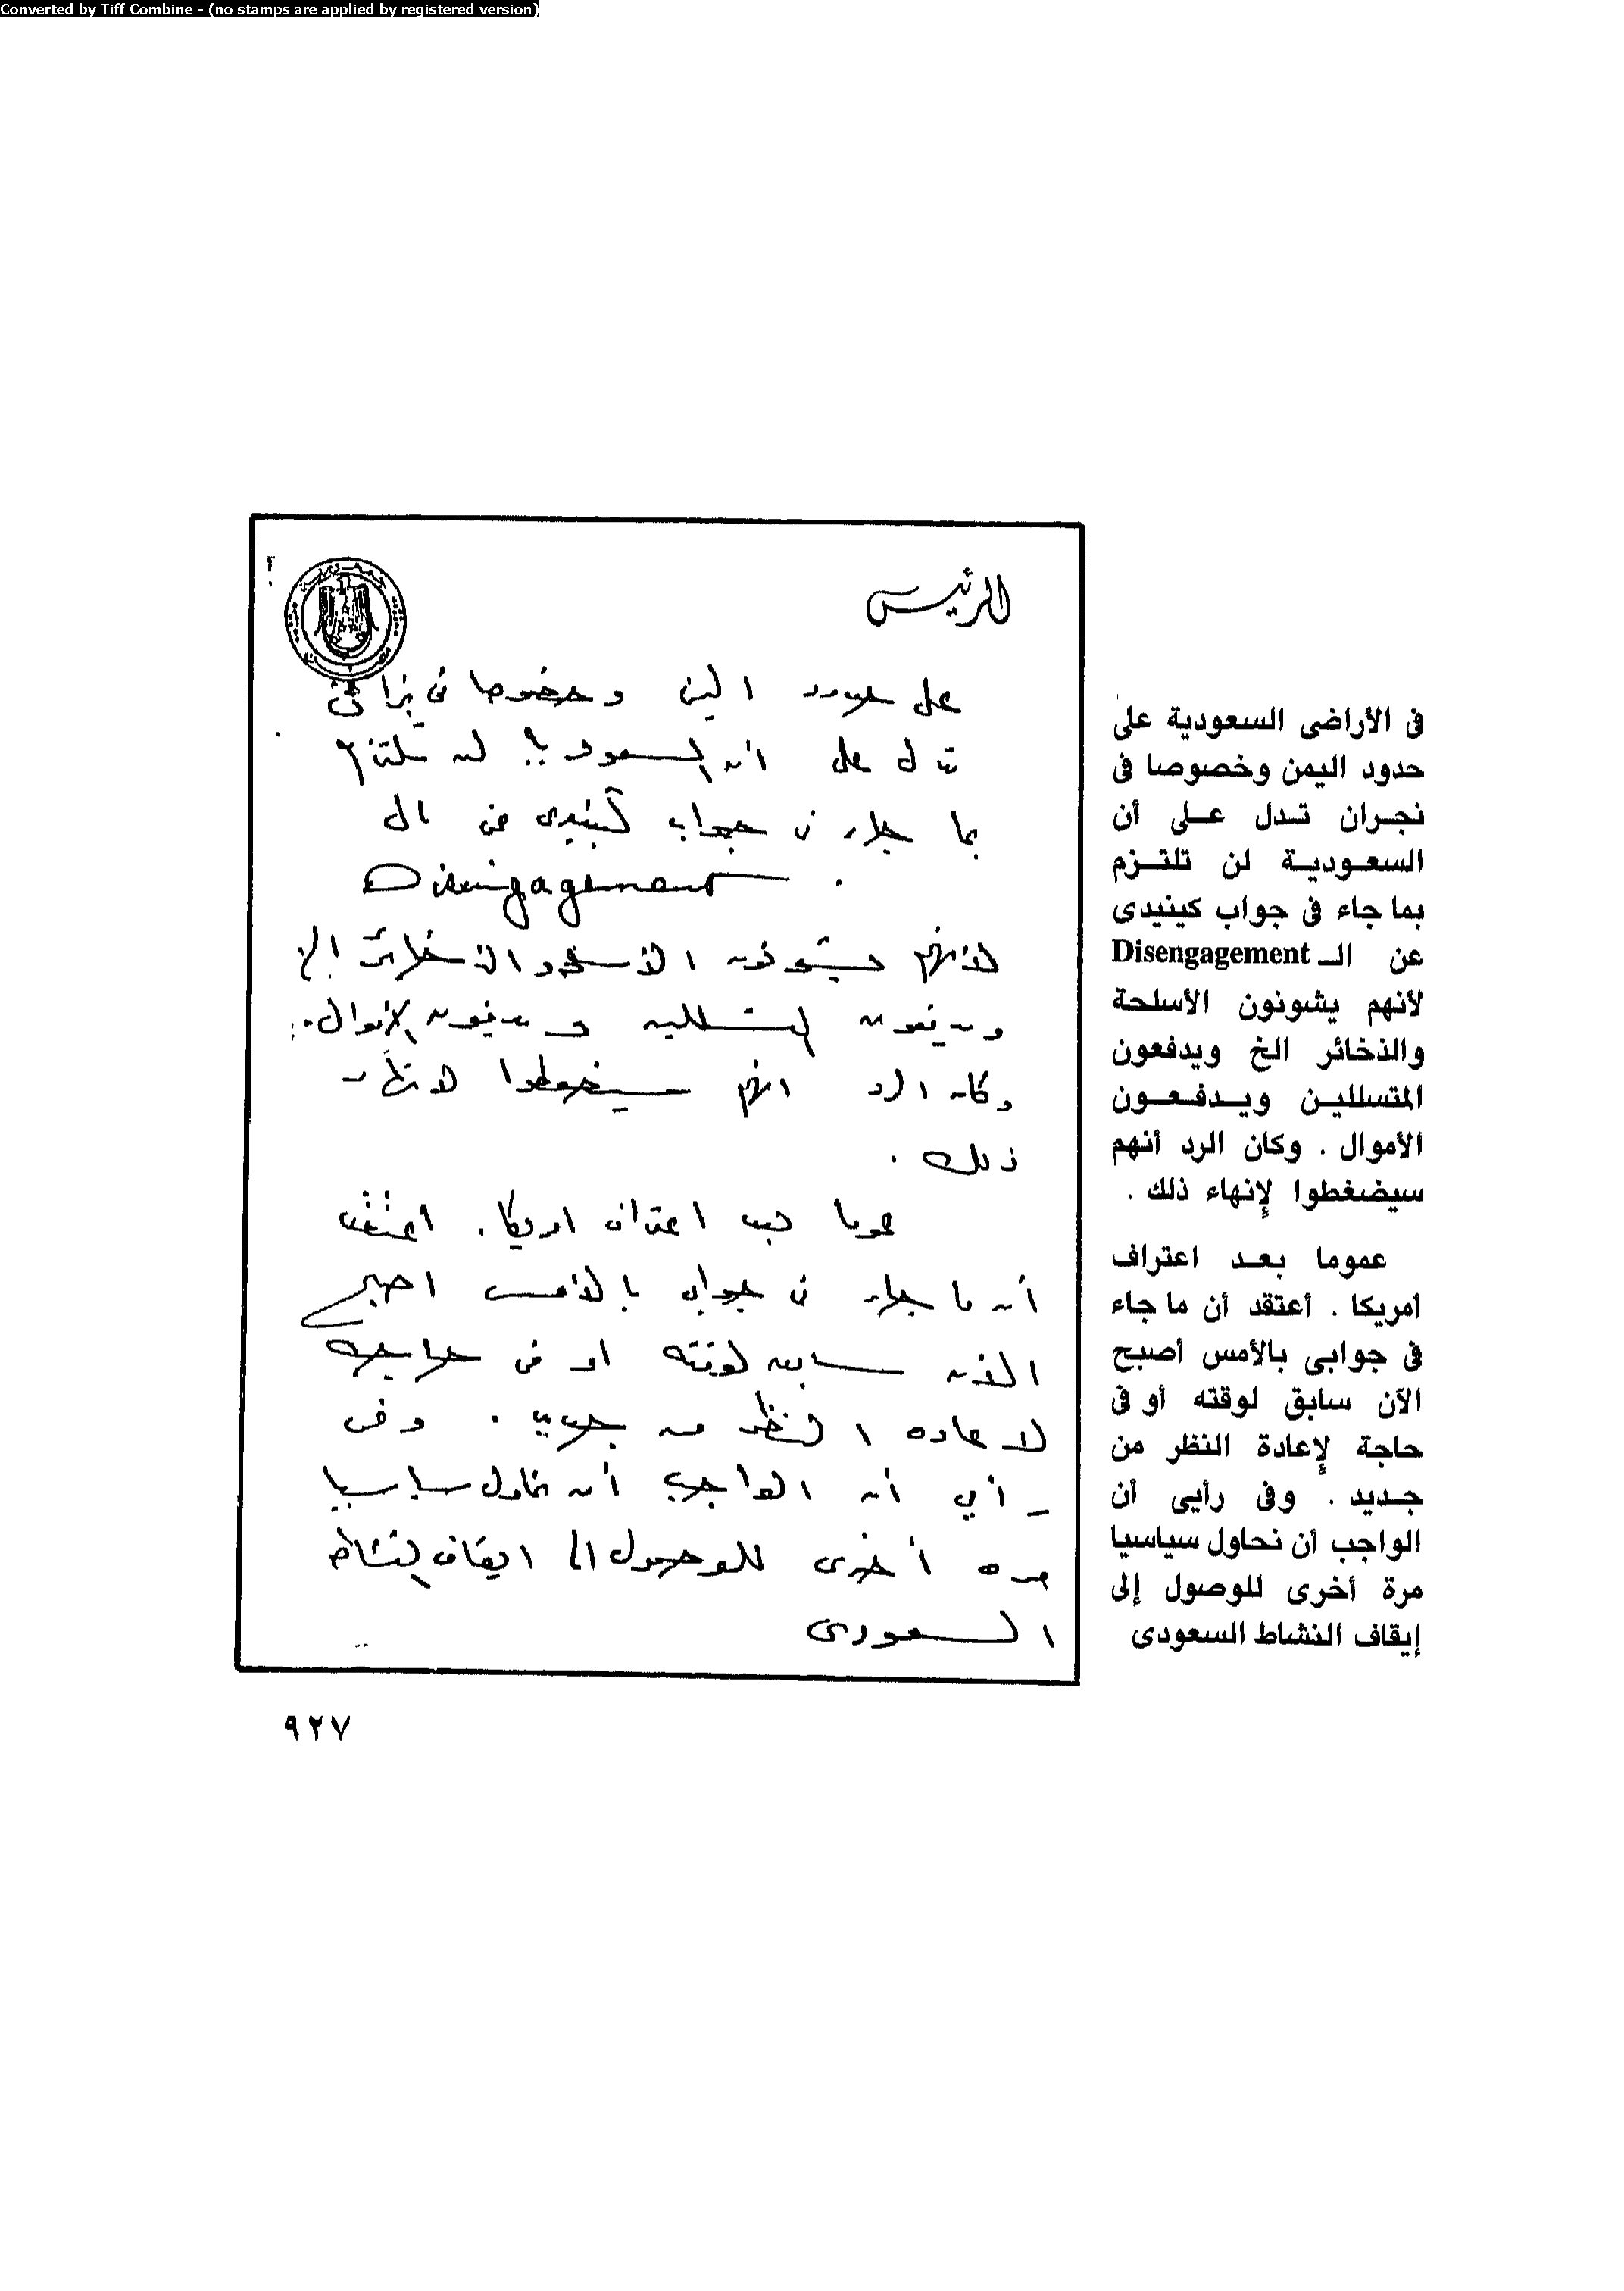 Converted by Tiff Combine - (no stamps are applied by registered version)
الرئيس
فى الأراضى السعودية على
حدود اليمن وخصوصا فى
نجران تدل على أن
السعودية لن تلتزم
بما جاء فى جواب كينيدى
عن الـ Disengagement
لأنهم يشونون الأسلحة
والذخائر الخ ويدفعون
المتسللين ويدفعون
الأموال . وكان الرد أنهم
سيضغطوا لإنهاء ذلك .
عموما بعد اعتراف
أمريكا . أعتقد أن ما جاء
فى جوابى بالأمس أصبح
الآن سابق لوقته أو فى
حاجة لإعادة النظر من
جديد . وفى رأيى أن
الواجب أن نحاول سياسيا
مرة أخرى للوصول إلى
إيقاف النشاط السعودى
على حدود اليمن وخصوصا فى نجران
تدل على أن السعودية لن تلتزم
بما جاء فى جواب كينيدى عن ال
Disengagement .
لأنهم يشونون الأسلحة والذخائر الخ
ويدفعون المتسللين ويدفعون الأموال .
وكان الرد انهم سيضغطوا لانهاء
ذلك .
عموما بعد اعتراف امريكا . اعتقد
أن ما جاء فى جوابى بالأمس اصبح
الآن سابق لوقته او فى حاجه
لاعاده النظر من جديد . وفى
رأيي أن الواجب أن نحاول سياسيا
مره أخرى للوصول الى ايقاف النشاط
السعودى
٩٢٧